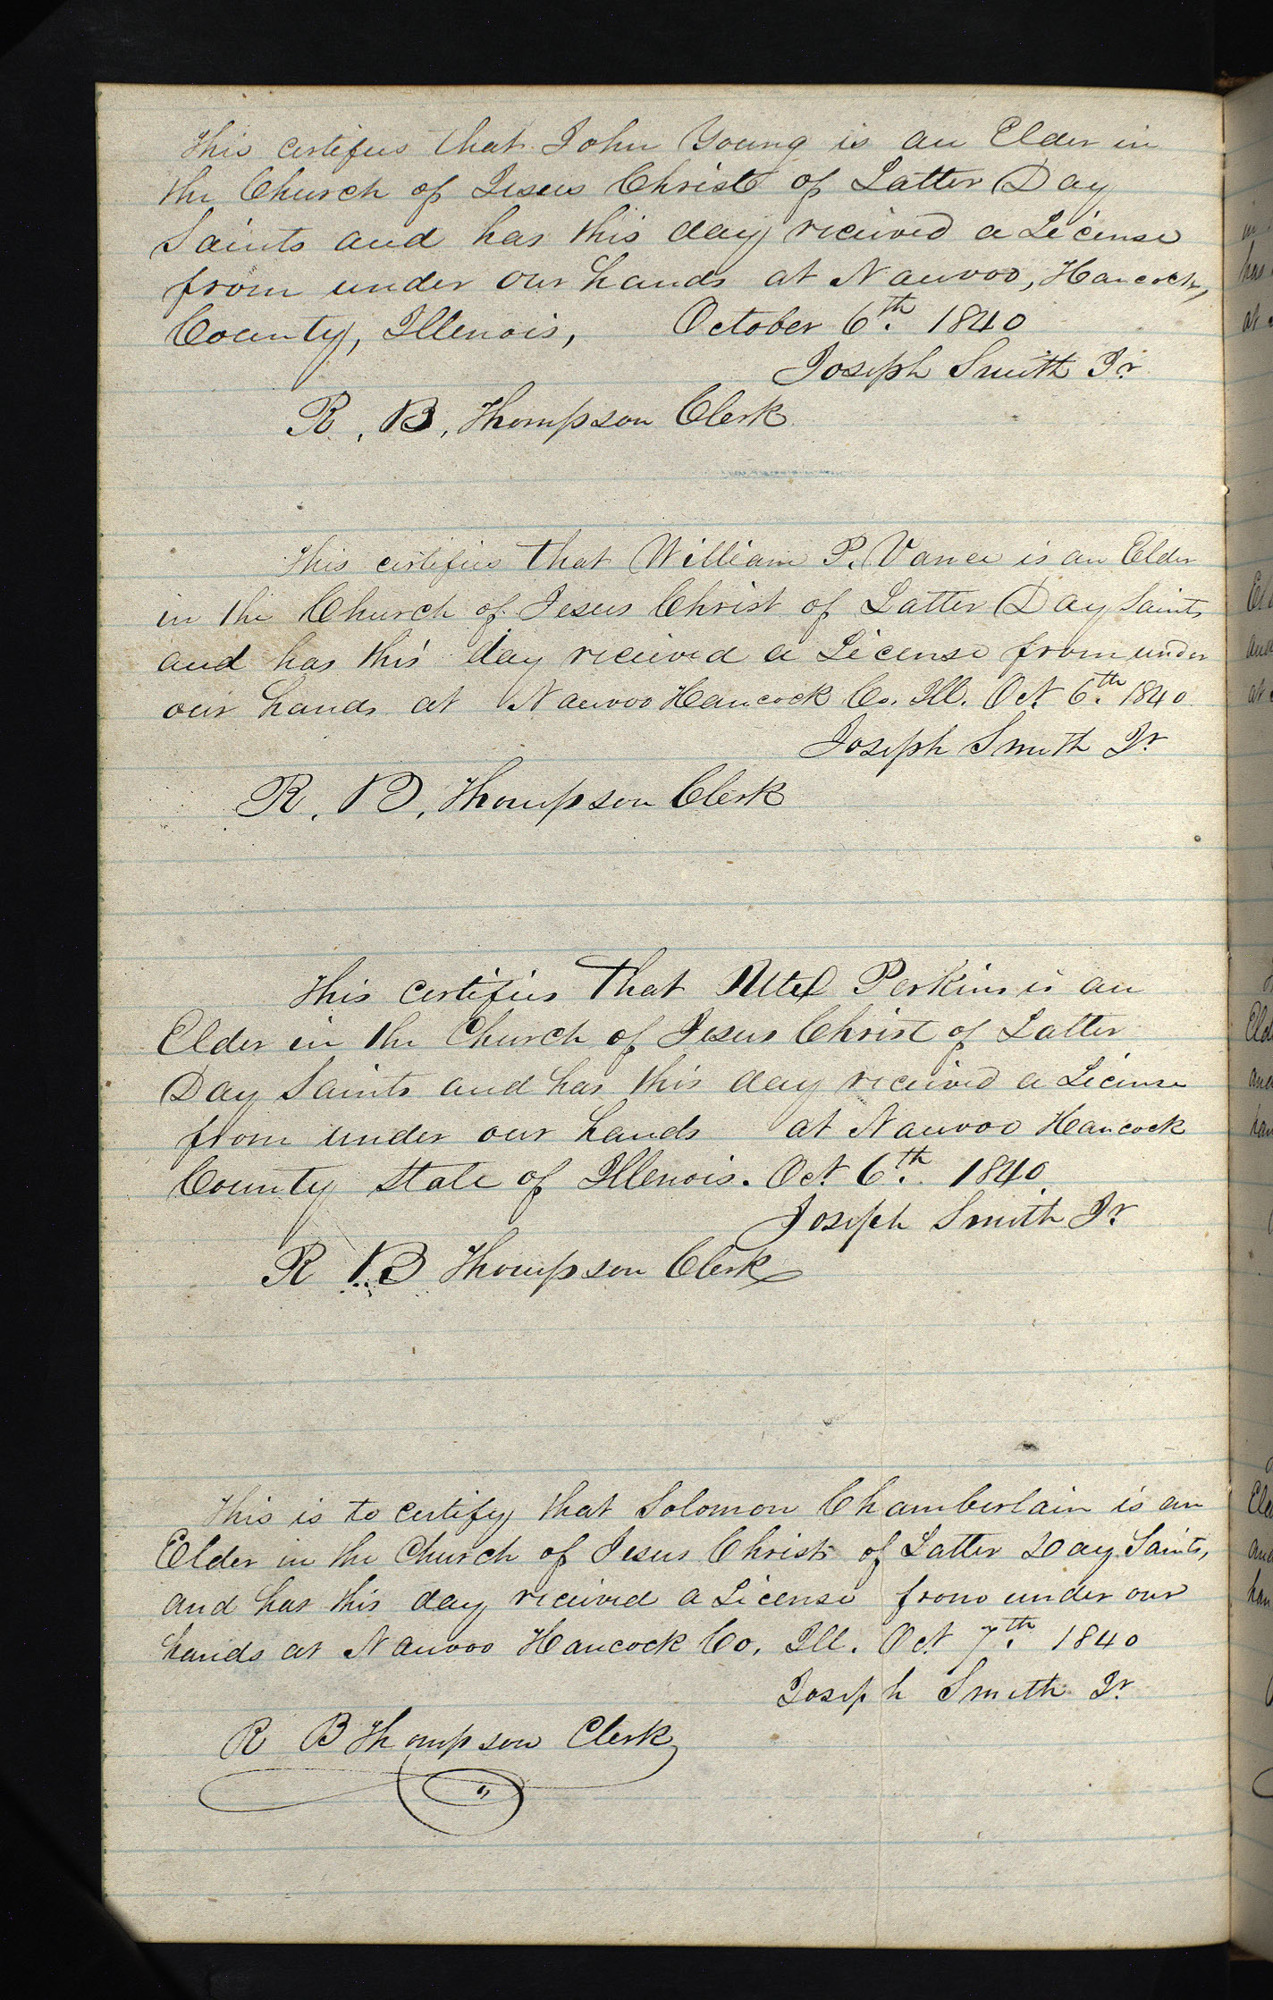 This certifies that John Young is an Elder in
the Church of Jesus Christ of Latter Day
Saints and has this day received a License
from under our hands at Nauvoo, Hancock,
County, Illenois, October 6th. 1840
Joseph Smith Jr.
R. B. Thompson Clerk
This certifies that William P. Vance is an Elder
in the Church of Jesus Christ of Latter Day Saints
and has this day received a License from under
our hands at Nauvoo Hancock Co. Ill. Oct. 6th. 1840
Joseph Smith Jr
R. B. Thompson Clerk
This certifies that Utel Perkins is an
Elder in the Church of Jesus Christ of Latter
Day Saints and has this day received a License
from under our hands at Nauvoo Hancock
County State of Illenois. Oct. 6th. 1840
Joseph Smith Jr.
R B Thompson Clerk
This is to certify that Solomon Chamberlain is an
Elder in the Church of Jesus Christ of Latter Day Saints,
and has this day received a License from under our
hands at Nauvoo Hancock Co. Ill. Oct. 7th. 1840
Joseph Smith Jr.
R B Thompson Clerk